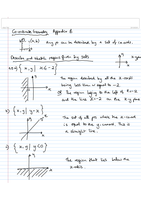 Coordinate Geometry Appendix B
(a,b)
Any pt can be described by a set of coords.
Describe and sketch regions given by sets
{x,y | x ≤ -2}
The region described by all the x-coords
being less than or equal to -2.
The region laying to the left of x=-2
and the line x=-2 on the x y plane
{x,y | y=x}
The set of all pts where the x-coord
is equal to the y-coord. This is
a straight line.
{x,y | y<0}
The region that lies below the
x-axis